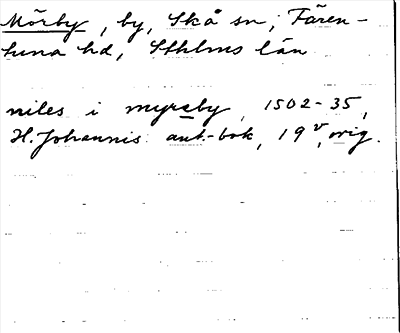 Mörby, by, Skå sn, Fären-
tuna hd, Sthlms län
niles i myrsby, 1502-35,
H. Johannis ant.-bok, 19v, orig.